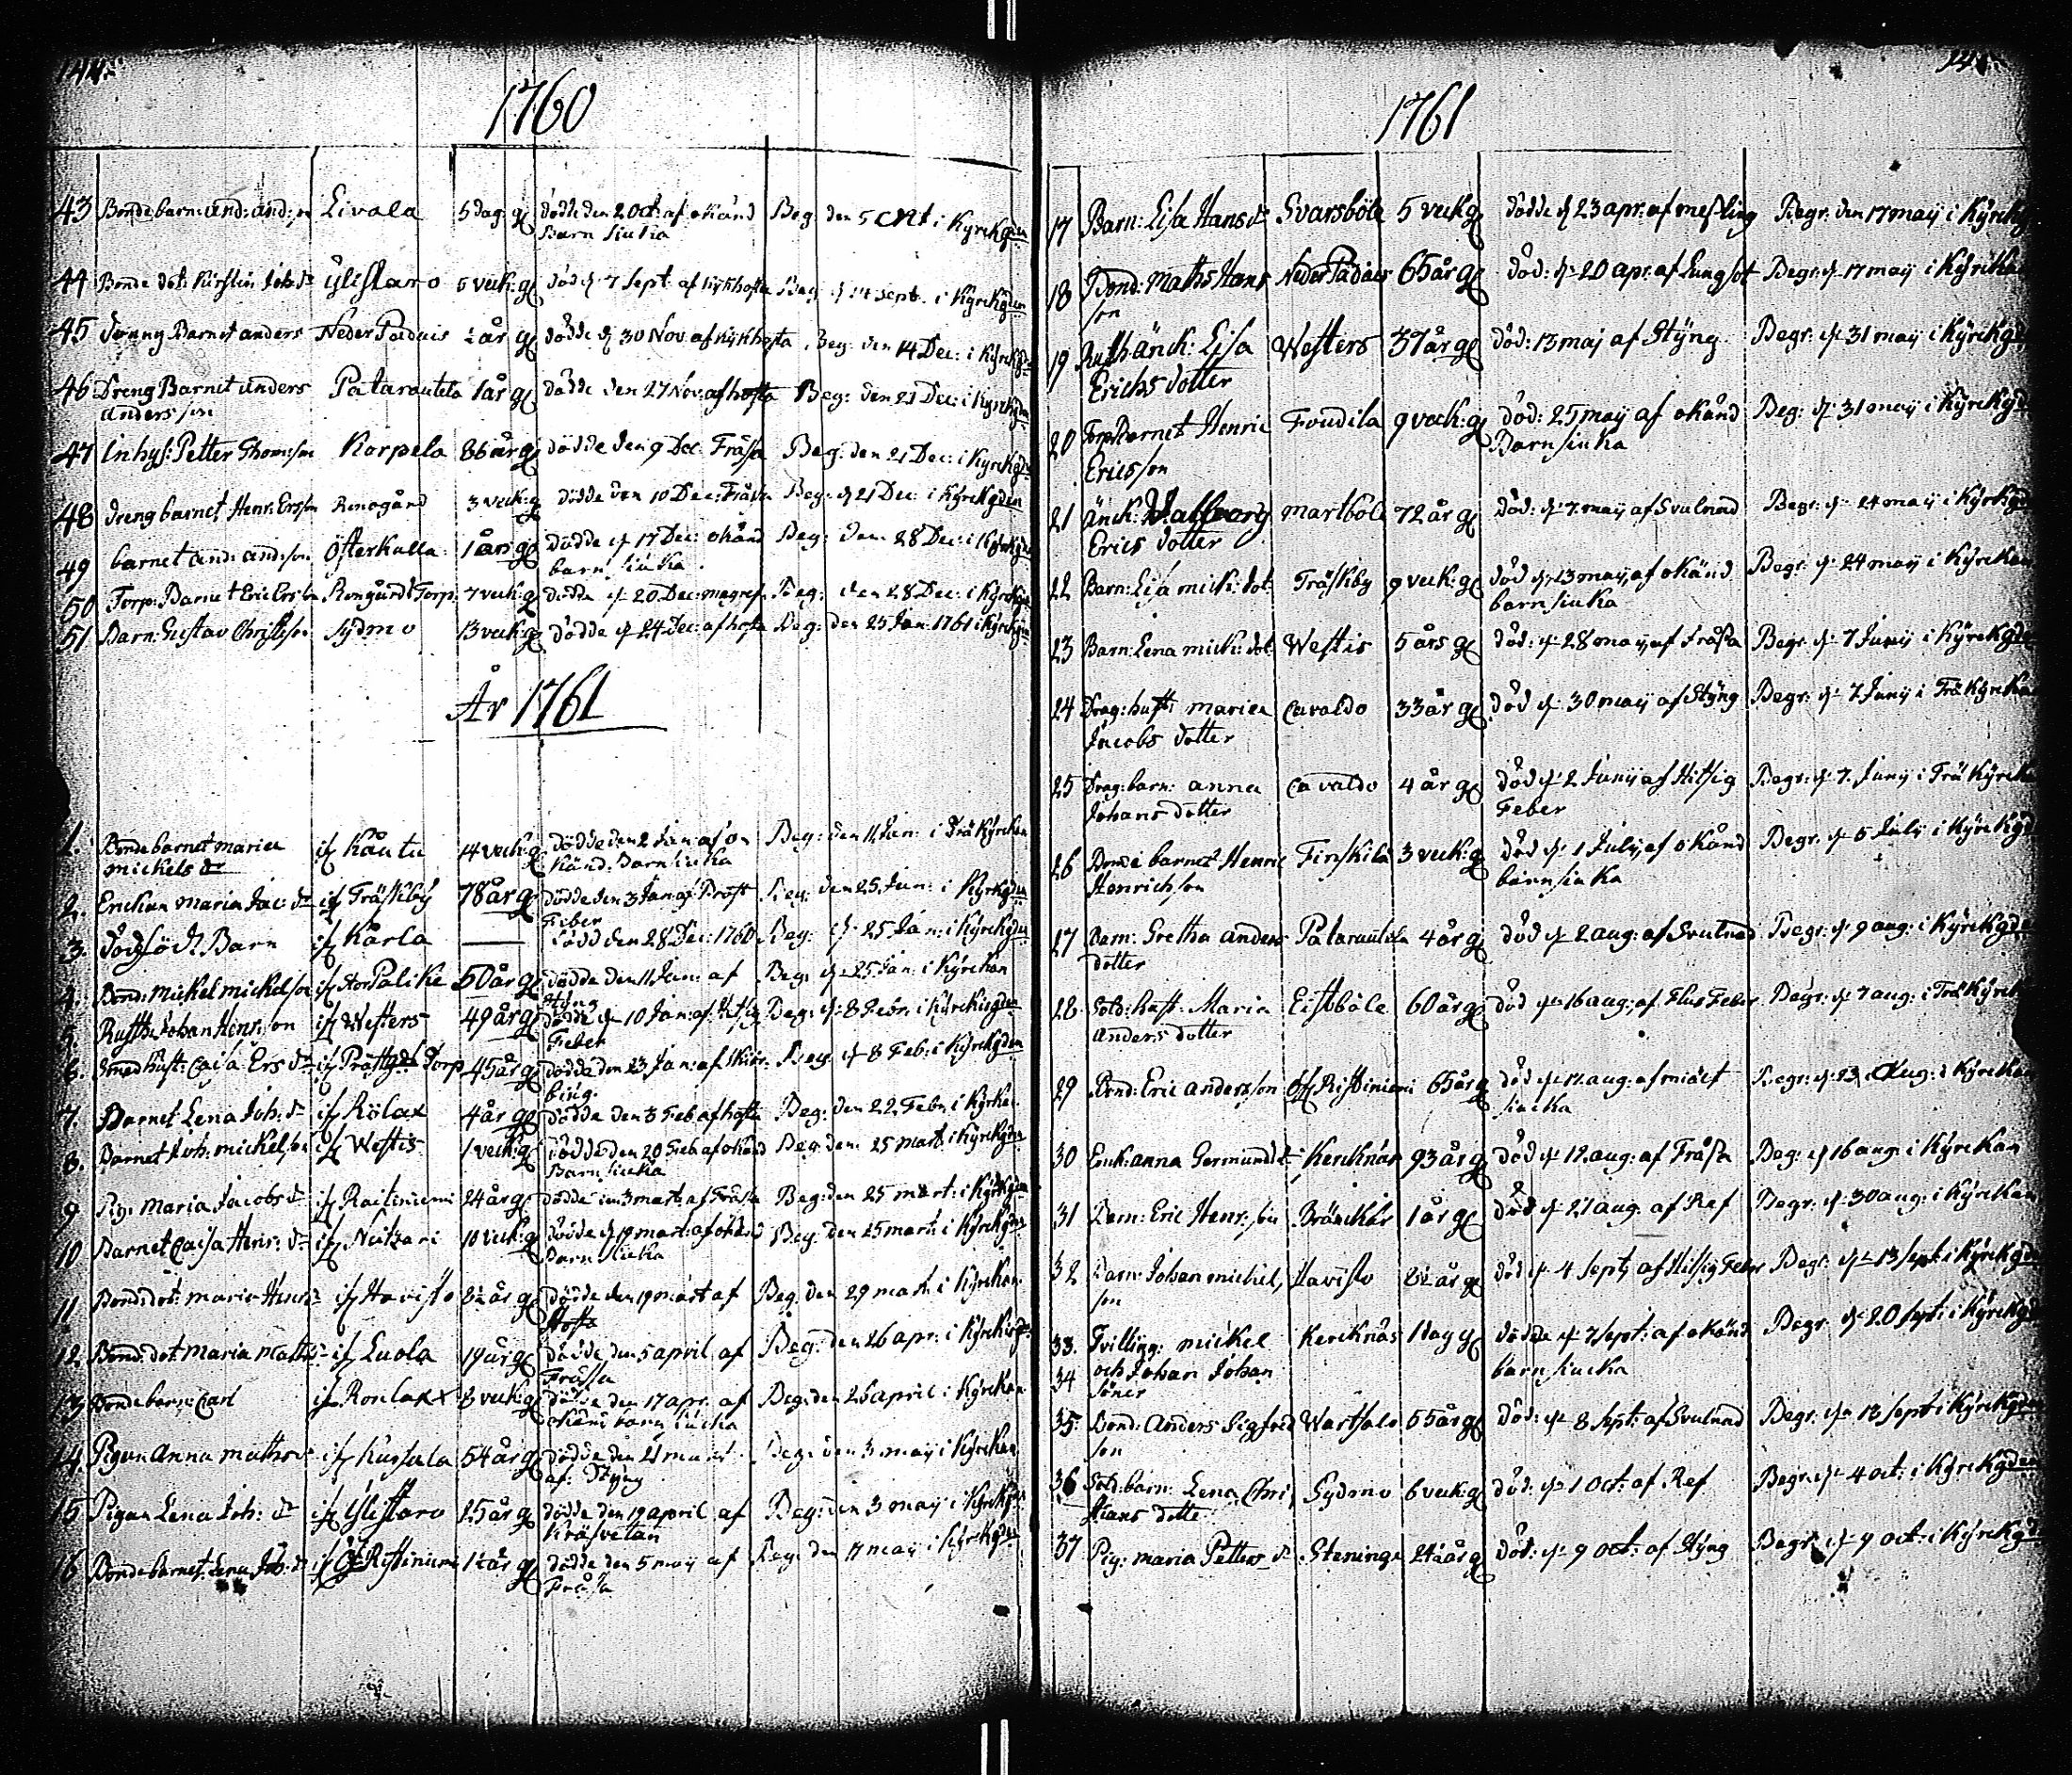 1760
43 Bondebarn: And: And:son Eivala 5 dag gl dödde den 2 Oct: af okänd Beg: den 5 Oct: i Kyrckgden
Barn siuka
44 Bonde dot: Kirstin Joh: dr Ylistaro 5 veck: gl död d 7 Sept. af kikhosta Beg: d 14 Sept. i Kyrckgden
45 Barnet anders Neder Padais ½ år gl dödde d 30 Nov. af kikhosta Beg: den 14 Dec: i Kyrckgden
46 Dreng Barnet anders Patarautila 1 år gl dödde den 27 Nov: af hosta Beg: den 21 Dec: i Kyrckgden
anders son
47 Inhys: Petter Thom:son Korpela 86 år gl dödde den 9 Dec: Fråssa Beg: den 21 Dec: i Kyrckgden
48 dreng barnet Henr: Ersson 3 veck: gl dödde den 10 Dec: Beg: d 21 Dec: i Kyrckgden
49 barnet And: And:son Österkulla 1 år gl dödde d 17 Dec: okänd Beg: den 28 Dec: i Kyrckgden
barn siuka
50 Torp: Barnet Eric Ersson Torp 7 veck: gl dödde d 20 Dec: Beg: den 28 Dec: i Kyrckgden
51 Barn: Gustav Christ:son Sydmo 13 veck: gl dödde d 24 Dec: af hosta Beg: den 25 Jan: 1761 i Kyrckgden
År 1761
1. Bondebarnet maria if Kåutu 14 veck: gl dödde den 2 Jan: af on Beg: den 11 Jan: i Trä Kyrckan
mickels dr känd Barn siuka
2. Enckan Maria Jac: dr if Träskby 78 år gl dödde den 3 Jan: af Beg: den 25 Jan: i Kyrckgden
Feber
3. dödfödt Barn if Kårla — född den 28 Dec: 1760 Beg: d 25 Jan: i Kyrckgden
4. Bond: Mickel mickelson if Stor Palike 50 år gl dödde den 11 Jan: af Beg: d 25 Jan: i Kyrckan
styng
5. Rusth: Johan Henr:son if Westers 49 år gl dödde d 10 Jan: af Hitsig Beg: d 8 Febr: i Kyrckgden
Feber
6. Smed hust: Caisa Ers dr if Torp 45 år gl dödde den 23 Jan: af Beg: d 8 Feb: i Kyrckgden
7. Barnet Lena Joh: dr if Rölax 4 år gl dödde den 3 Feb: af hosta Beg: den 22 Febr: i Kyrckan
8. Barnet Joh: mickelson if Westis 1 veck: gl dödde den 20 Feb: af okänd Beg: den 25 Mart: i Kyrckgden
Barn siuka
9 Pig: Maria Jacobs dr if Raitiniemi 24 år gl dödde den 3 mart: af Fråssa Beg: den 25 mart: i Kyrckgden
10 Barnet Caisa Henr: dr if Nitzari 10 veck: gl dödde d 19 mart: af okänd Beg: den 25 mart: i Kyrckgden
Barn siuka
11 Bonde dot: maria Henr: dr if Havisto 8½ år gl dödde den 19 mart: af Beg: den 29 mart: i Kyrckan
Hosta
12 Bond: dot: maria Matts dr if Luola 19 år gl dödde den 5 april af Beg: den 26 apr: i Kyrckgd:
Fråssa
13 Bondebarn: Carl if 8 veck: gl dödde den 17 apr: af Beg: den 26 april i Kyrckan
okänd barn siucka
14. Pigan Anna maths dr if 54 år gl dödde den 21 Beg: den 3 maij i Kyrckan
af: Styng
15 Pigan Lena Joh: dr if Ylistaro 25 år gl dödde den 19 april af Beg: den 3 maij i Kyrckgden
Kräfvetan
16 Bondebarnet Lena Joh: dr if Öf Ristiniemi 1½ år gl dödde den 5 maij af Beg: den 17 maij i Kyrckgden
Fråssa
1761
17 Barn: Lisa Hans dr Svarsböle 5 veck gl dödde d 23 apr: af messling Begr: den 17 maij i Kyrckg
18 Bond: Maths Hans Neder Padais 65 år gl död: d 20 apr: af Lungsot Begr: d 17 maij i Kyrcka
son
19 Rusth änck: Lisa Westers 37 år gl död: 13 maj af Styng. Begr: d 31 maij i Kyrckgd
Erichs dotter
20 Torpbarnet Henric Foudila 9 veck: gl död: 25 maij af okänd Beg: d 31 maij i Kyrckgd
Ericsson Barn siuka
21 änck: Valborg martböle 72 år gl död: d 7 maij af Svulnad Begr: d 24 maij i Kyrckgd
Erics dotter
22 Barn: Lisa mick: dot Träskby 9 veck: gl död d 13 maij af okänd Begr: d 24 maij i Kyrckan
barn siuka
23 Barn: Lena mick: dot Westis 5 års gl död: d 28 maij af Fråssa Begr: d 7 Junij i Kyrckgd
24 Drag: hust: maria Cavaldo 33 år gl död d 30 maij af Styng Begr: d 7 Junij i Trä Kyrckan
Jacobs dotter
25 Drag: barn: anna Cavaldo 4 år gl död d 2 Junij af Hitsig Begr: d 7. Junij i Trä Kyrck
Johans dotter Feber
26 Bonde barnet Henric Finskila 3 veck: gl död d 1 Julij af okänd Begr: d 5 Julij i Kyrckgd
Henrichson barn siuka
27 Barn: Gretha anders Patarautila 4 år gl död d 2 aug: af Svulnad Begr: d 9 aug: i Kyrckgd
dotter
28 Sold: hust: Maria Eistböle 60 år gl död d 16 aug: af Flus Feber Begr: d 7 aug: i Trä Kyrck
anders dotter
29 Bond: Eric andersson Öf Ristiniemi 65 år gl död d 17. aug: af Begr: d 23 Aug: i Kyrckan
siucka
30 Enck: anna Germunds dr Kercknäs 93 år gl död d 12. aug: af Fråssa Beg: d 16 aug: i Kyrckan
31 Barn: Eric Henr: son 1 år gl död d 21 aug: af Ref Begr: d 30 aug: i Kyrckan
32 Barn: Johan mickel Havisto 8½ år gl död d 4 Sept: af Hitsig Feber Begr: d 13 Sept: i Kyrckgd
son
33. Tvilling: mickel Kercknäs 1 dag gl dödde d 7 Sept: af okänd Begr: d 20 Sept: i Kyrckgd
34 och Johan Johan barn siucka
söner
35 Bond: Anders Sigfred Wartsalo 55 år gl död: d 8 Sept: af Svulnad Begr: d 13 Sept: i Kyrckgden
son
36 Sold: barn: Lena Chri Sydmo 6 veck: gl död: d 1 Oct: af Ref Begr: d 4 oct: i Kyrckgden
stians dotter
37 Pig: maria Petters dr Steninge 24½ år gl död: d 9 Oct: af Styng Begr: d 9 oct: i Kyrckgd